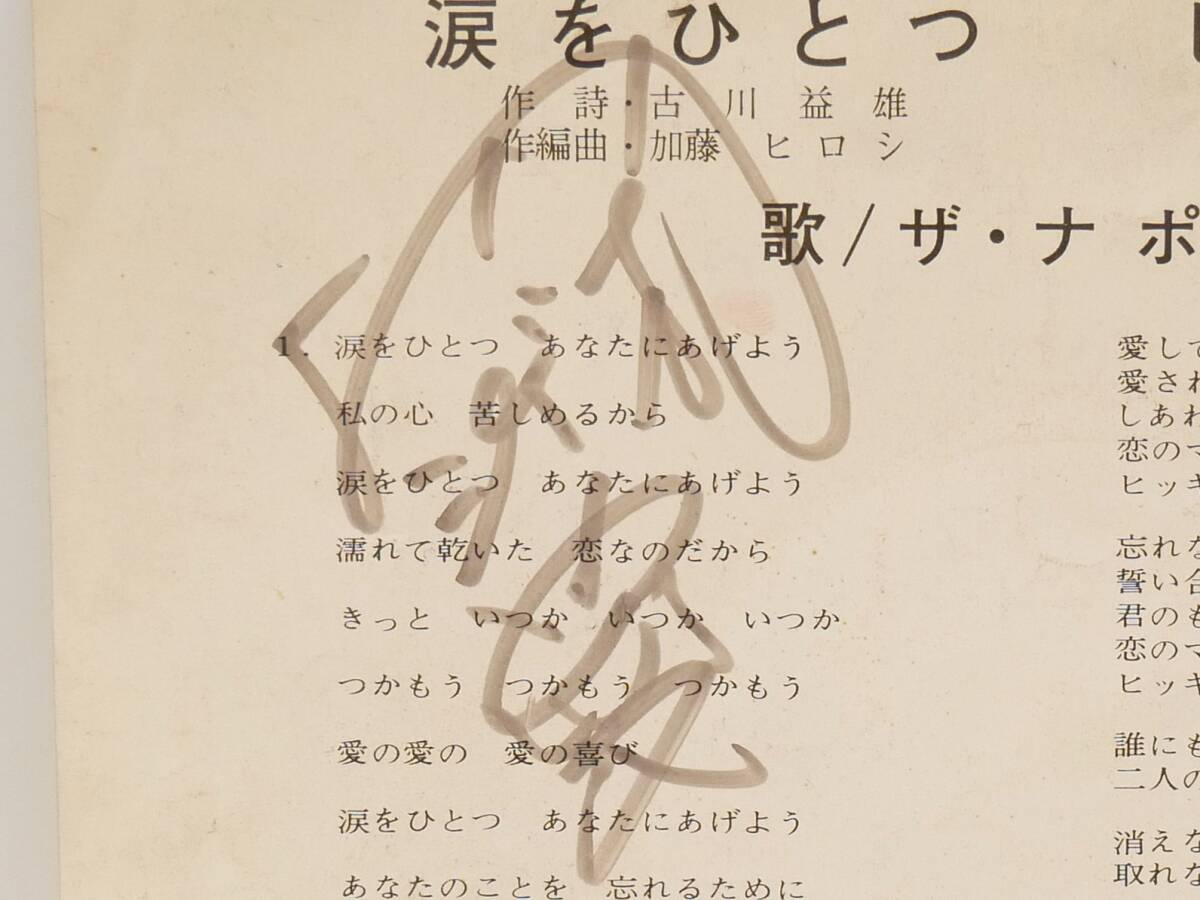 涙をひとつ
作詩・古川益雄
作編曲・加藤ヒロシ
歌/ザ・ナポ
1. 涙をひとつ あなたにあげよう
私の心 苦しめるから
涙をひとつ あなたにあげよう
濡れて乾いた 恋なのだから
きっと いつか いつか いつか
つかもう つかもう つかもう
愛の愛の 愛の喜び
涙をひとつ あなたにあげよう
あなたのことを 忘れるために
愛して
愛され
しあわ
恋のマ
ヒッキ
忘れな
誓い合
君のも
恋のマ
ヒッキ
誰にも
二人の
消えな
取れな